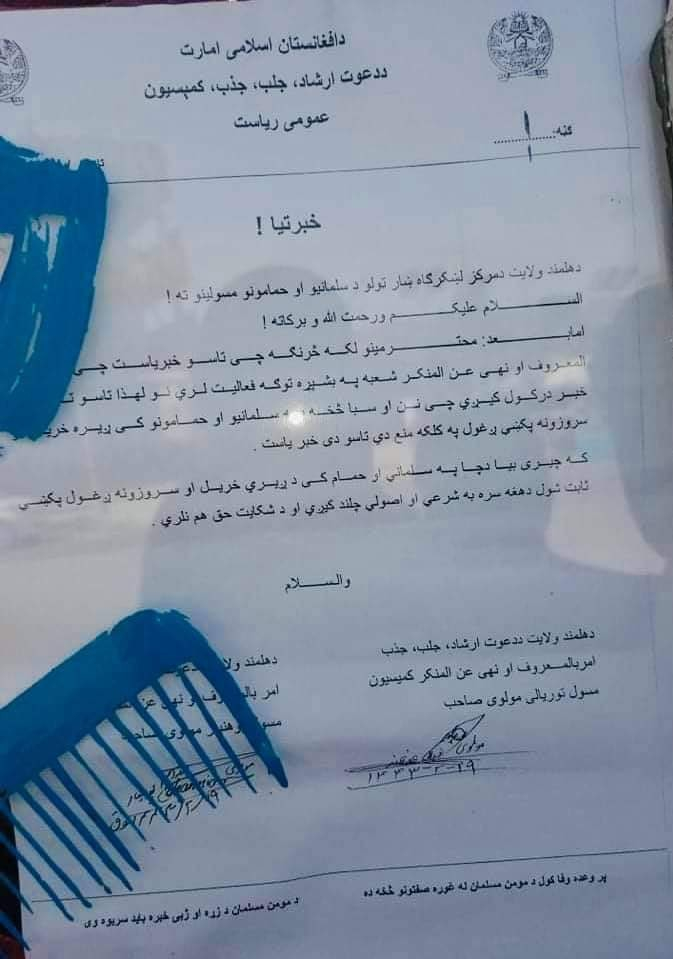 دافغانستان اسلامی امارت
ددعوت ارشاد، جلب، جذب، کمېسیون
عمومی ریاست
ګڼه
خبرتیا !
دهلمند ولایت دمرکز لښکرګاه ښار ټولو د سلمانیو او حمامونو مسولینو ته !
الســـلام علیکـــم ورحمت الله و برکاته !
امابـــعد: محتـــرمینو لکه څرنګه چی تاسو خبریاست چی
المعروف او نهی عن المنکر شعبه په بشپړه توګه فعالیت لري نو لهذا تاسو ته
خبر درکول کیږي چی نن او سبا څخه په سلمانیو او حمامونو کی ږیره خریل
سروزونه پکښي ږغول په کلکه منع دي تاسو دی خبر یاست .
که چیری بیا دچا په سلماني او حمام کی د ږیري خریل او سروزونه ږغول پکښي
ثابت شول دهغه سره به شرعي او اصولي چلند کیږي او د شکایت حق هم نلري .
والســـلام
دهلمند ولایت ددعوت ارشاد، جلب، جذب
امربالمـعروف او نهی عن المنکر کمیسیون
مسول توریالی مولوی صاحب
دهلمند ولا
امر بال
مسو
مولوی صاحب
مولوی
۱۴۴۳-۲-۱۹
پر وعده وفا کول د مومن مسلمان له غوره صفتونو څخه ده
د مومن مسلمان د زړه او ژبی خبره باید سربوه وی